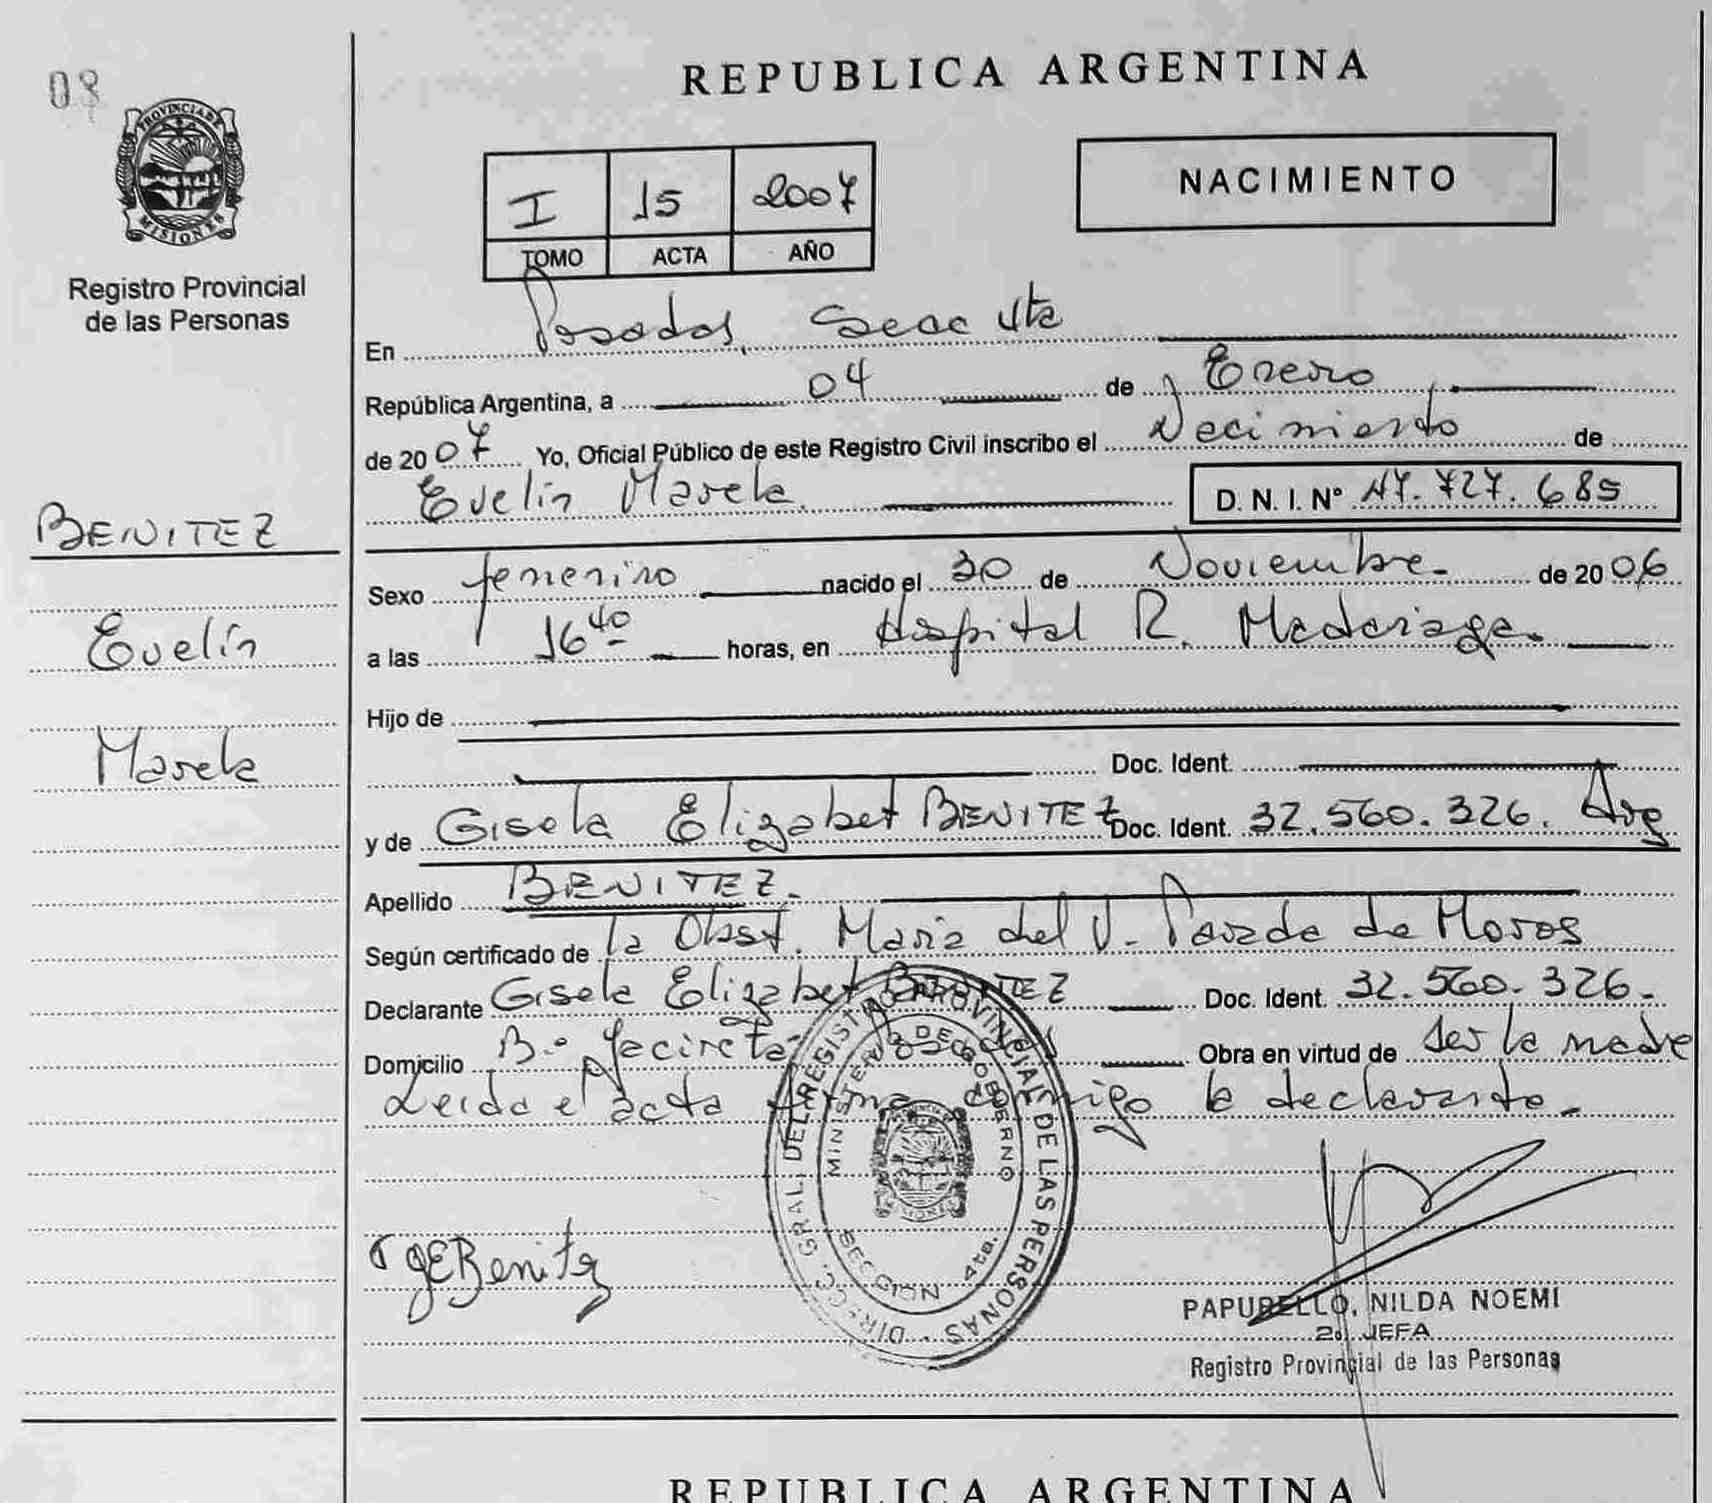 08
PROVINCIA DE
MISIONES
Registro Provincial
de las Personas
BENITEZ
Evelin
Marela
REPUBLICA ARGENTINA
I 15 2007
TOMO ACTA AÑO
NACIMIENTO
En Posadas, Secc 4ta
República Argentina, a 04 de Enero
de 2007 Yo, Oficial Público de este Registro Civil inscribo el Nacimiento de
Evelin Marela D. N. I. Nº 47.727.685
Sexo femenino nacido el 30 de Noviembre de 2006
a las 16 40 horas, en Hospital R. Madariaga
Hijo de
Doc. Ident.
y de Gisela Elizabet BENITEZ Doc. Ident. 32.560.326. Arg
Apellido BENITEZ.
Según certificado de la Obst. Maria del V. Parada de Moros
Declarante Gisela Elizabet BENITEZ Doc. Ident. 32.560.326.
Domicilio Bº Yacireta Posadas Obra en virtud de ser la madre
Leida el acta firma conmigo la declarante.
DIRECC. GRAL. DEL REGISTRO PROVINCIAL DE LAS PERSONAS
MINISTERIO DE GOBIERNO
SECCION 4ta.
GEBenitez
PAPURELLO, NILDA NOEMI
2da JEFA
Registro Provincial de las Personas
REPUBLICA ARGENTINA